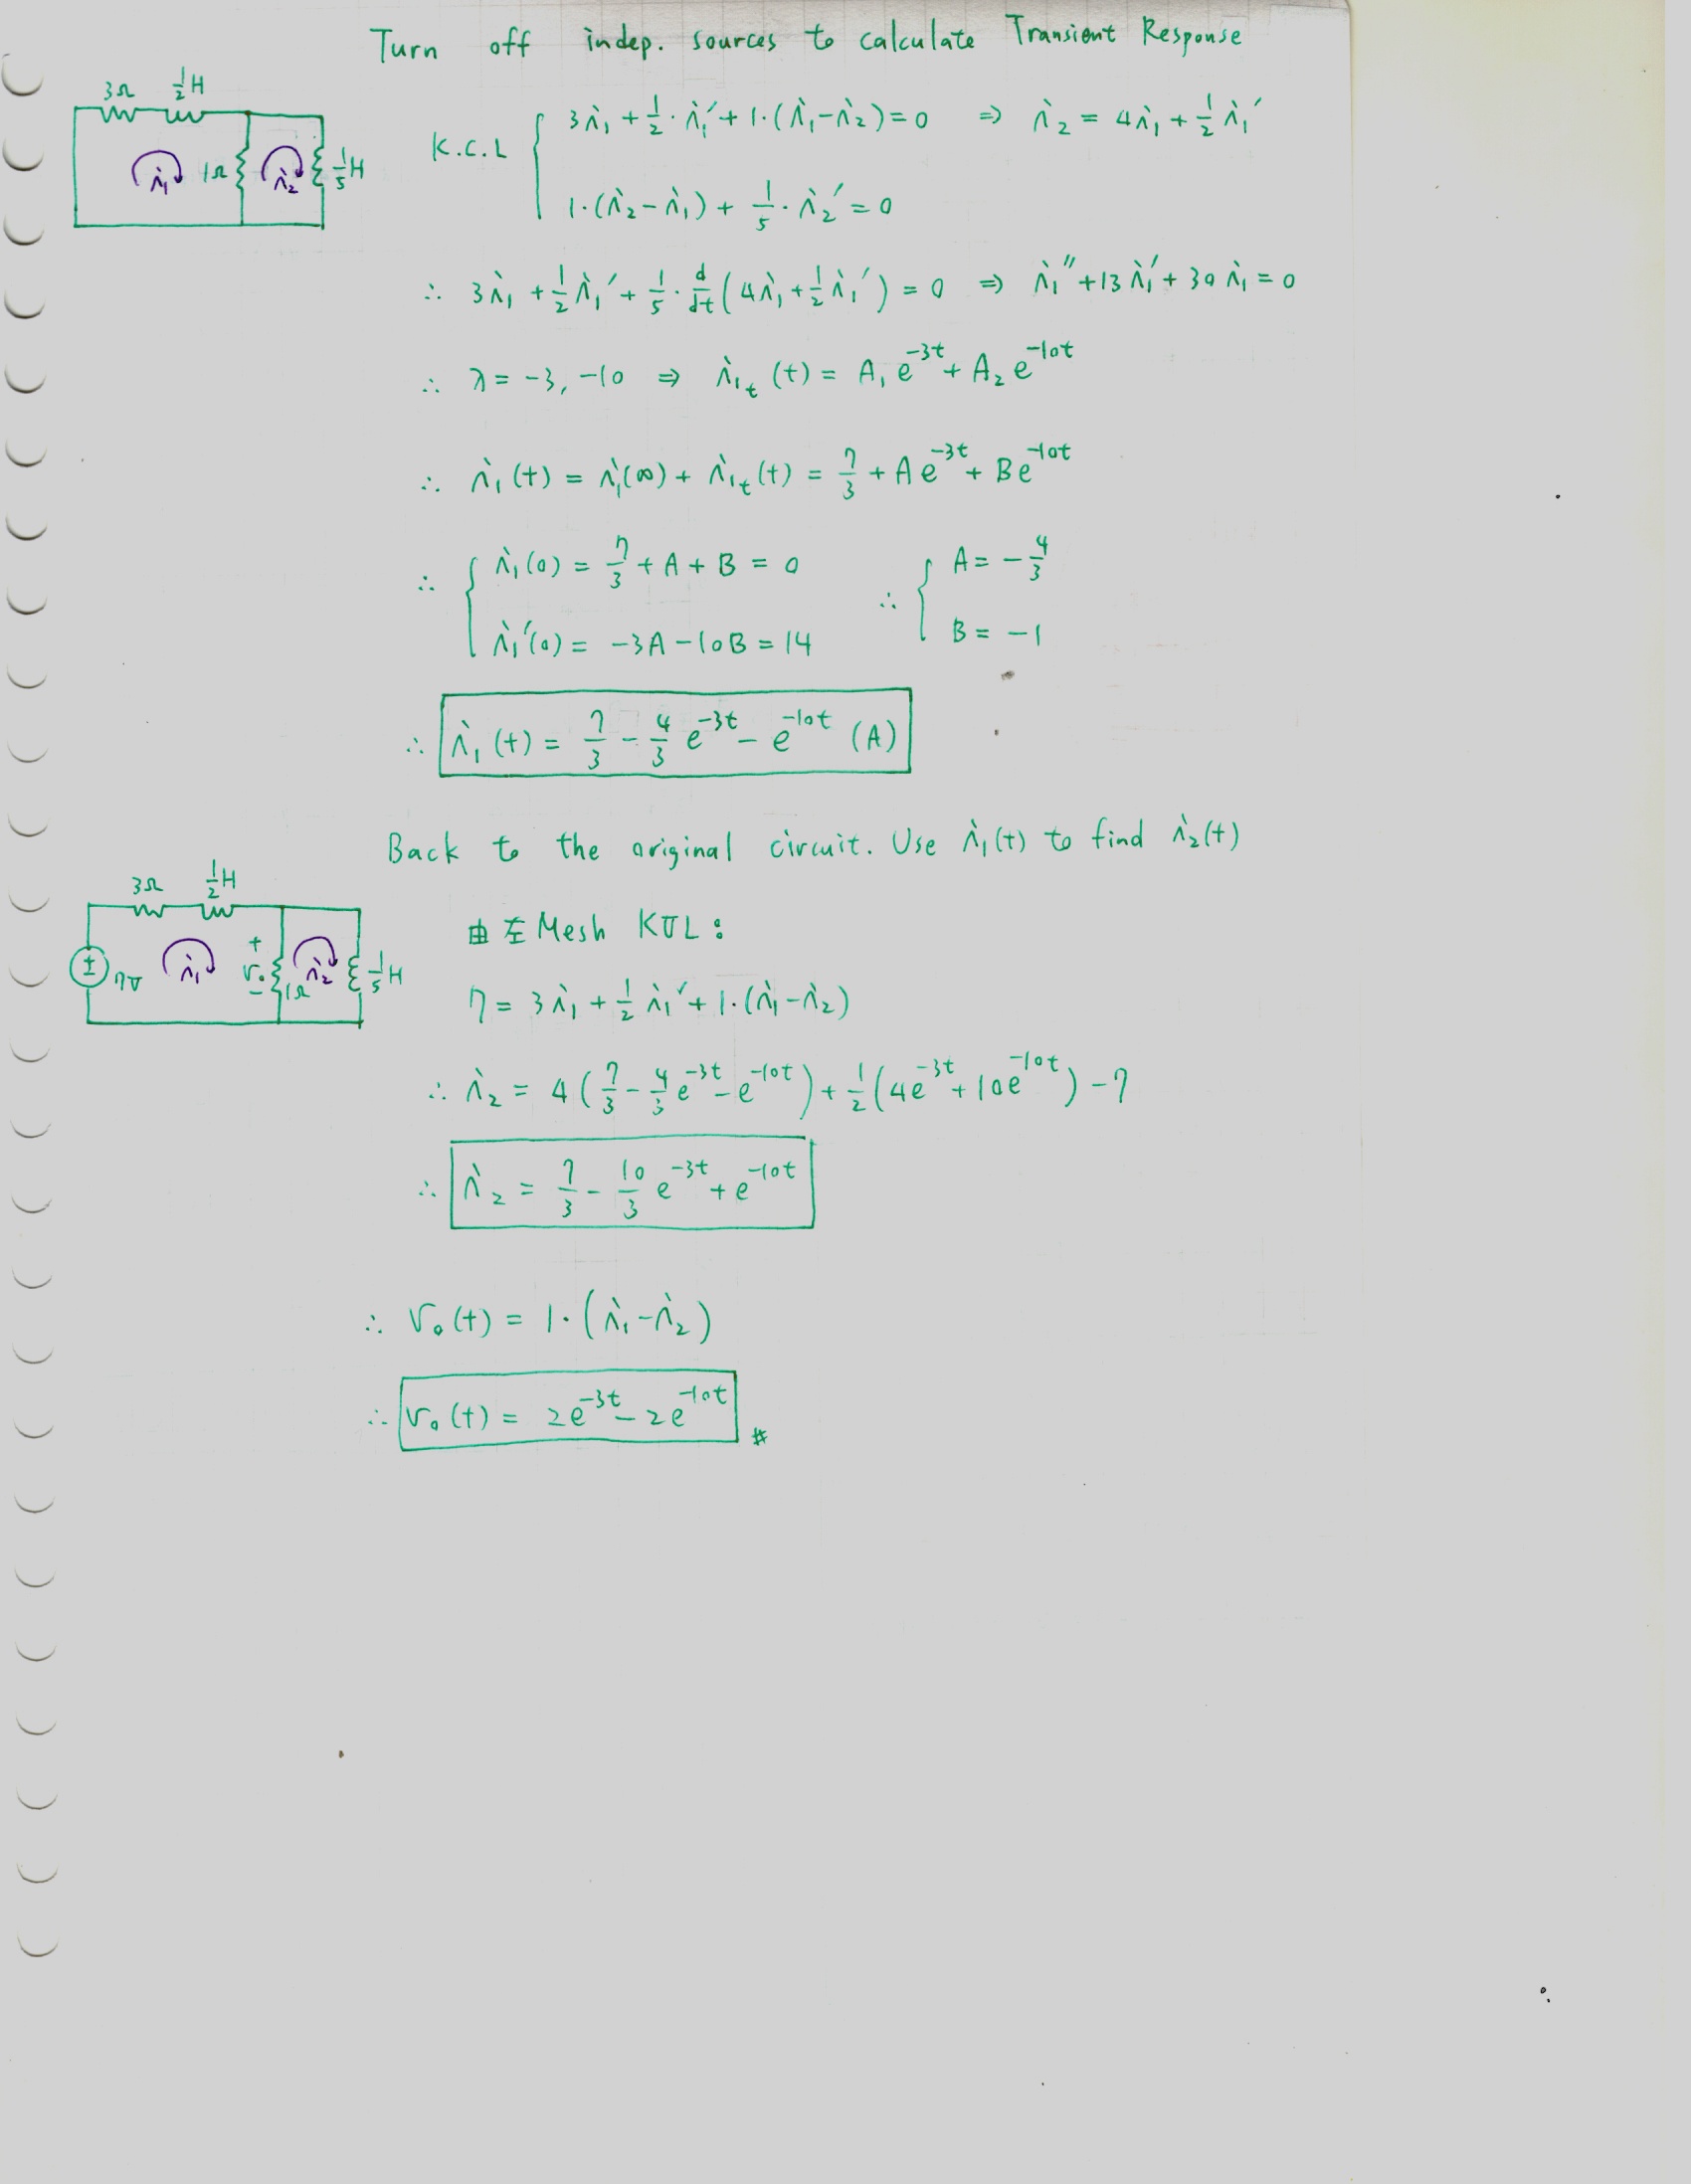 Turn off indep. sources to calculate Transient Response
3Ω ½H
1Ω ⅕H
i₁ i₂
K.C.L { 3i₁ + ½·i₁′ + 1·(i₁−i₂) = 0 ⇒ i₂ = 4i₁ + ½i₁′
1·(i₂−i₁) + ⅕·i₂′ = 0
∴ 3i₁ + ½i₁′ + ⅕·d/dt(4i₁ + ½i₁′) = 0 ⇒ i₁″ + 13i₁′ + 30i₁ = 0
∴ λ = −3, −10 ⇒ i₁ₜ(t) = A₁e^{−3t} + A₂e^{−10t}
∴ i₁(t) = i₁(∞) + i₁ₜ(t) = 7/3 + Ae^{−3t} + Be^{−10t}
∴ { i₁(0) = 7/3 + A + B = 0 ∴ { A = −4/3
i₁′(0) = −3A − 10B = 14 B = −1
∴ i₁(t) = 7/3 − 4/3 e^{−3t} − e^{−10t} (A)
Back to the original circuit. Use i₁(t) to find i₂(t)
3Ω ½H
7V i₁ + v₀ − 1Ω i₂ ⅕H
由左Mesh KVL:
7 = 3i₁ + ½i₁′ + 1·(i₁−i₂)
∴ i₂ = 4(7/3 − 4/3 e^{−3t} − e^{−10t}) + ½(4e^{−3t} + 10e^{−10t}) − 7
∴ i₂ = 7/3 − 10/3 e^{−3t} + e^{−10t}
∴ v₀(t) = 1·(i₁−i₂)
∴ v₀(t) = 2e^{−3t} − 2e^{−10t} #